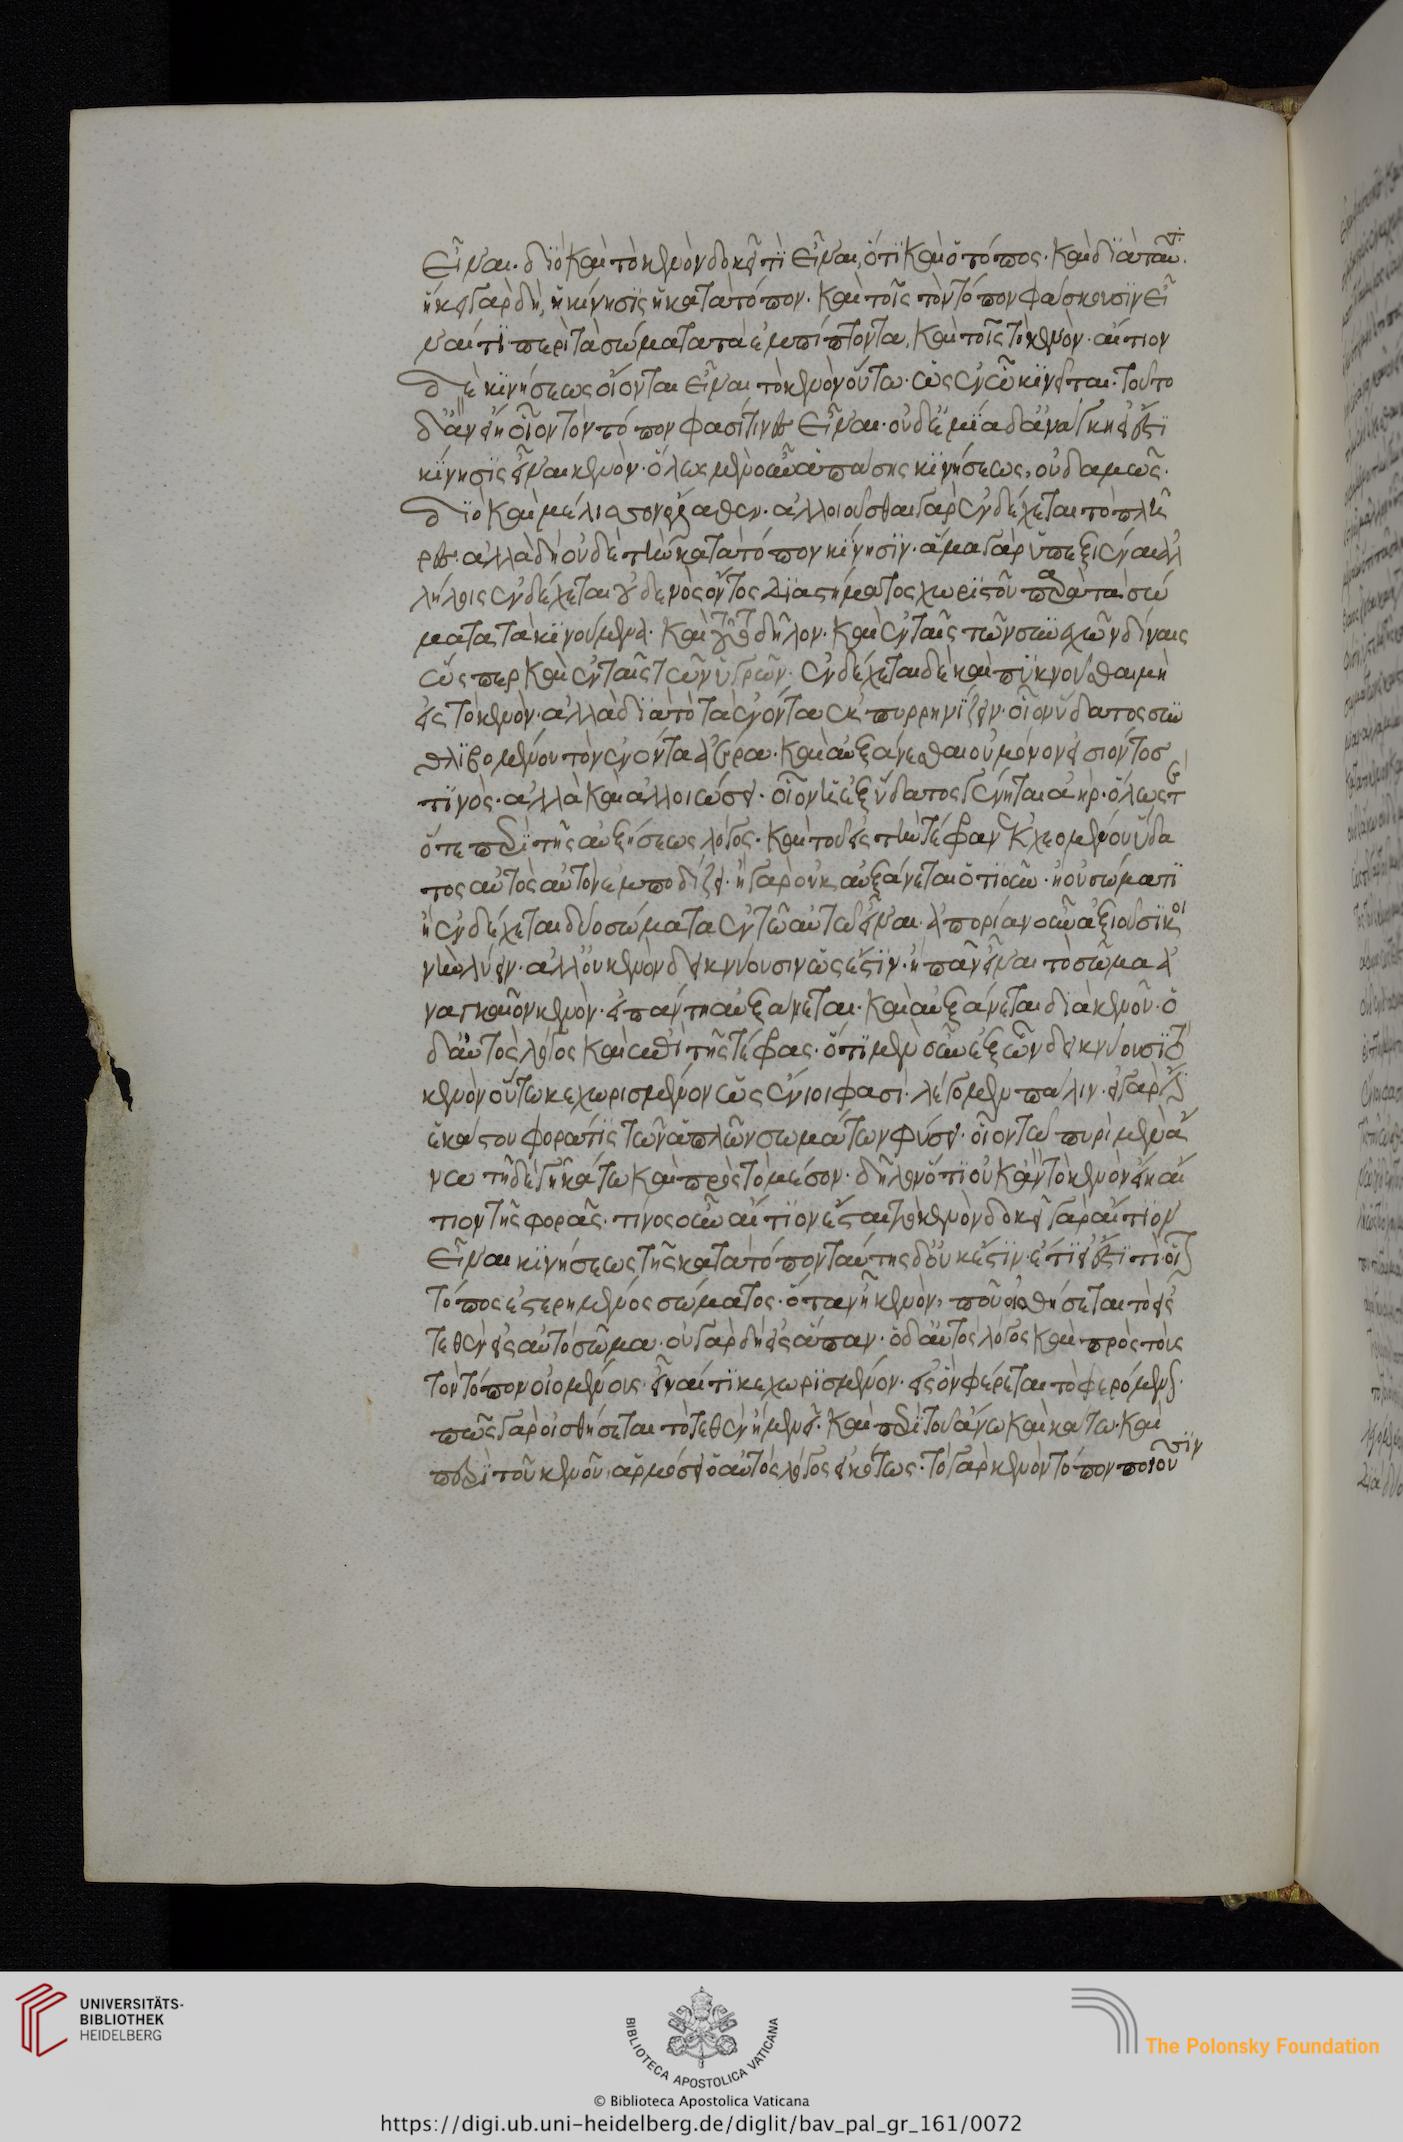 εἶναι. διὸ καὶ τὸ κενὸν δοκεῖ τὶ εἶναι, ὅτι καὶ ὁ τόπος. καὶ διὰ ταυτί.
ἥκει γὰρ δὴ, ἡ κίνησις ἡ κατὰ τόπον. καὶ τοῖς τὸν τόπον φάσκουσιν εἶ
ναί τι περὶ τὰ σώματα τὰ ἐμπίπτοντα, καὶ τοῖς τὸ κενὸν. αἴτιον
δὲ κινήσεως οἴονται εἶναι τὸ κενὸν οὕτω. ὡς ἐν ᾧ κινεῖται. τοῦτο
δ' ἂν εἴη οἷον τὸν τόπον φασί τινες εἶναι. οὐδεμία δ' ἀνάγκη εἰ ἔστι
κίνησις εἶναι κενὸν. ὅλως μὲν οὖν ἁπάσης κινήσεως, οὐδαμῶς.
διὸ καὶ μέλισσον ἔλαθεν. ἀλλοιοῦσθαι γὰρ ἐνδέχεται τὸ πλῆ
ρες. ἀλλὰ δὴ οὐδὲ τὴν κατὰ τόπον κίνησιν. ἅμα γὰρ ὑπεξιέναι ἀλ
λήλοις ἐνδέχεται οὐδενὸς ὄντος διαστήματος χωριστοῦ παρὰ τὰ σώ
ματα τὰ κινούμενα. καὶ τοῦτο δῆλον. καὶ ἐν ταῖς τῶν συνεχῶν δίναις
ὥσπερ καὶ ἐν ταῖς τῶν ὑγρῶν. ἐνδέχεται δὲ καὶ πυκνοῦσθαι μὴ
εἰς τὸ κενὸν. ἀλλὰ διὰ τὸ τὰ ἐνόντα ἐκπυρρηνίζειν. οἷον ὕδατος συν
θλιβομένου τὸν ἐνόντα ἀέρα. καὶ αὐξάνεσθαι οὐ μόνον εἰσιόντος
τινὸς. ἀλλὰ καὶ ἀλλοιώσει. οἷον εἰ ἐξ ὕδατος γένηται ἀήρ. ὅλως
ὅτε περὶ τῆς αὐξήσεως λόγος. καὶ τοῦ εἰς τὴν τέφραν ἐκχεομένου ὕδα
τος αὐτὸς αὑτὸν ἐμποδίζει. ἢ γὰρ οὐκ αὐξάνεται ὁτιοῦν. ἢ οὐ σώματι
ἢ ἐνδέχεται δύο σώματα ἐν τῶ αὐτῶ εἶναι. ἀπορίαν οὖν ἀξιοῦσι κοι
νὴν λύειν. ἀλλ' οὐ κενὸν δεικνύουσιν ὡς ἔστιν. ἢ πᾶν εἶναι τὸ σῶμα ἀ
ναγκαῖον κενὸν. εἰ πάντη αὐξάνεται. καὶ αὐξάνεται διὰ κενοῦ. ὁ
δ' αὐτὸς λόγος καὶ ἐπὶ τῆς τέφρας. ὅτι μὲν οὖν ἐξ ὧν δεικνύουσι τὸ
κενὸν οὕτω κεχωρισμένον ὡς ἔνιοι φασὶ. λέγομεν πάλιν. εἰ γὰρ ἔστι
ἑκάστου φορά τίς τῶν ἁπλῶν σωμάτων φύσει. οἷον τῶ πυρὶ μὲν ἄ
νω τῆ δὲ γῆ κάτω καὶ πρὸς τὸ μέσον. δῆλον ὅτι οὐκ ἂν τὸ κενὸν εἴη αἴ
τιον τῆς φορᾶς. τινος οὖν αἴτιον ἔσται τὸ κενὸν δοκεῖ γὰρ αἴτιον
εἶναι κινήσεως τῆς κατὰ τόπον ταύτης δ' οὐκ ἔστιν. ἔτι εἰ ἔστι τι οἷον
τόπος ἐστερημένος σώματος. ὅταν ῇ κενὸν, ποῦ οἰσθήσεται τὸ εἰσ
τεθὲν εἰς αὐτὸ σῶμα. οὐ γὰρ δὴ εἰς ἅπαν. ὁ δ' αὐτὸς λόγος καὶ πρὸς τοὺς
τὸν τόπον οἰομένους εἶναί τι κεχωρισμένον. εἰς ὃν φέρεται τὸ φερόμενον.
πῶς γὰρ οἰσθήσεται τὸ τεθὲν ἢ μενεῖ. καὶ περὶ τοῦ ἄνω καὶ κάτω. καὶ
περὶ τοῦ κενοῦ, ἁρμόσει ὁ αὐτὸς λόγος εἰκότως. τὸ γὰρ κενὸν τόπον ποιοῦσιν
UNIVERSITÄTS-
BIBLIOTHEK
HEIDELBERG
BIBLIOTECA APOSTOLICA VATICANA
The Polonsky Foundation
© Biblioteca Apostolica Vaticana
https://digi.ub.uni-heidelberg.de/diglit/bav_pal_gr_161/0072